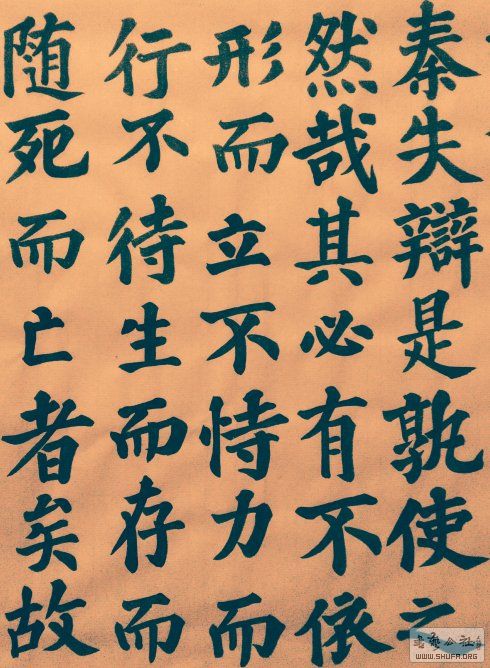 秦失辯是孰使之
然哉其必有不依
形而立不恃力而
行不待生而存而
随死而亡者矣故
WWW.SHUFA.ORG